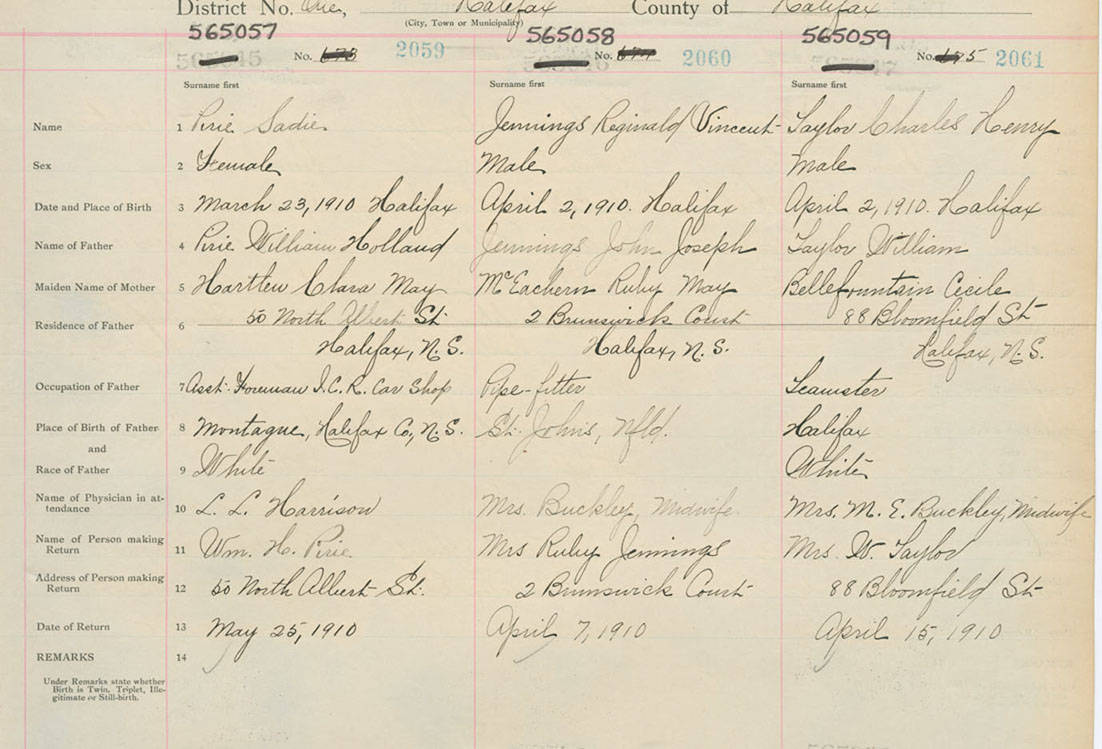 District No. One, Halifax County of Halifax
(City, Town or Municipality)
565057 565058 565059
No. 2059 No. 2060 No. 2061
Surname first Surname first Surname first
Name 1 Pirie Sadie Jennings Reginald Vincent Taylor Charles Henry
Sex 2 Female Male Male
Date and Place of Birth 3 March 23, 1910 Halifax April 2, 1910. Halifax April 2, 1910. Halifax
Name of Father 4 Pirie William Holland Jennings John Joseph Taylor William
Maiden Name of Mother 5 Hartlen Clara May McEachern Ruby May Bellefountain Cecile
Residence of Father 6 50 North Albert St. 2 Brunswick Court 88 Bloomfield St
Halifax, N.S. Halifax, N.S. Halifax, N.S.
Occupation of Father 7 Asst. Foreman I.C.R. Car Shop Pipe-fitter Teamster
Place of Birth of Father 8 Montague, Halifax Co, N.S. St. Johns, Nfld. Halifax
and
Race of Father 9 White White
Name of Physician in at-
tendance 10 L. L. Harrison Mrs. Buckley, Midwife Mrs. M. E. Buckley, Midwife
Name of Person making
Return 11 Wm. H. Pirie Mrs Ruby Jennings Mrs. W. Taylor
Address of Person making
Return 12 50 North Albert St. 2 Brunswick Court 88 Bloomfield St
Date of Return 13 May 25, 1910 April 7, 1910 April 15, 1910
REMARKS 14
Under Remarks state whether
Birth is Twin, Triplet, Ille-
gitimate or Still-birth.